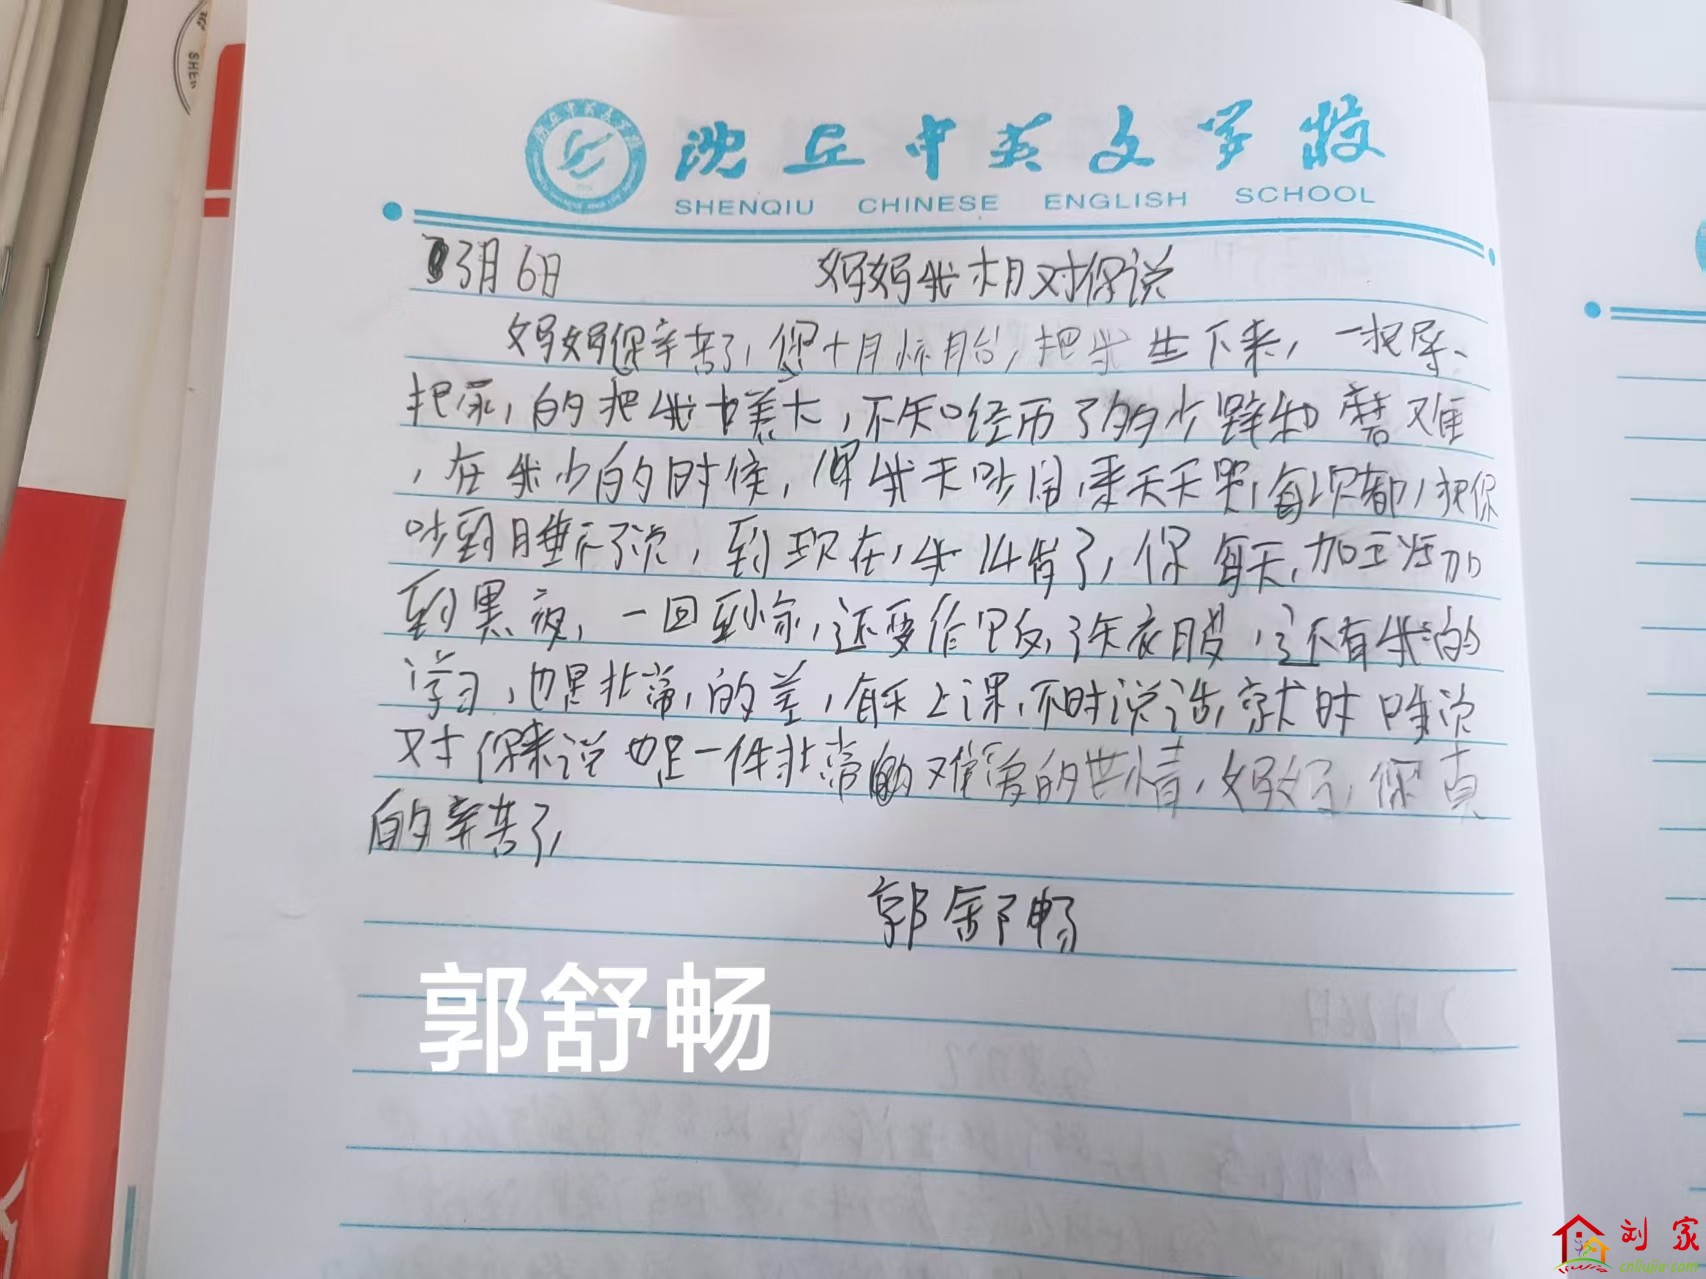 沈丘中英文学校
SHENQIU CHINESE ENGLISH SCHOOL
3月6日 妈妈我想对你说
妈妈您辛苦了,您十月怀胎,把我生下来,一把屎、
把尿,的把我养大,不知经历了多少磨难
,在我小的时候,我天吵闹,天天哭,每次都,把你
吵到睡不了觉,到现在,我14岁了,你每天,加班加
到黑夜,一回到家,还要作饭,洗衣服,还有我的
学习,也是非常,的差,每天上课,不时说话,
对你来说也是一件非常的难受的世情,妈妈,你真
的辛苦了,
郭舒畅
郭舒畅
刘家
cnliujia.com